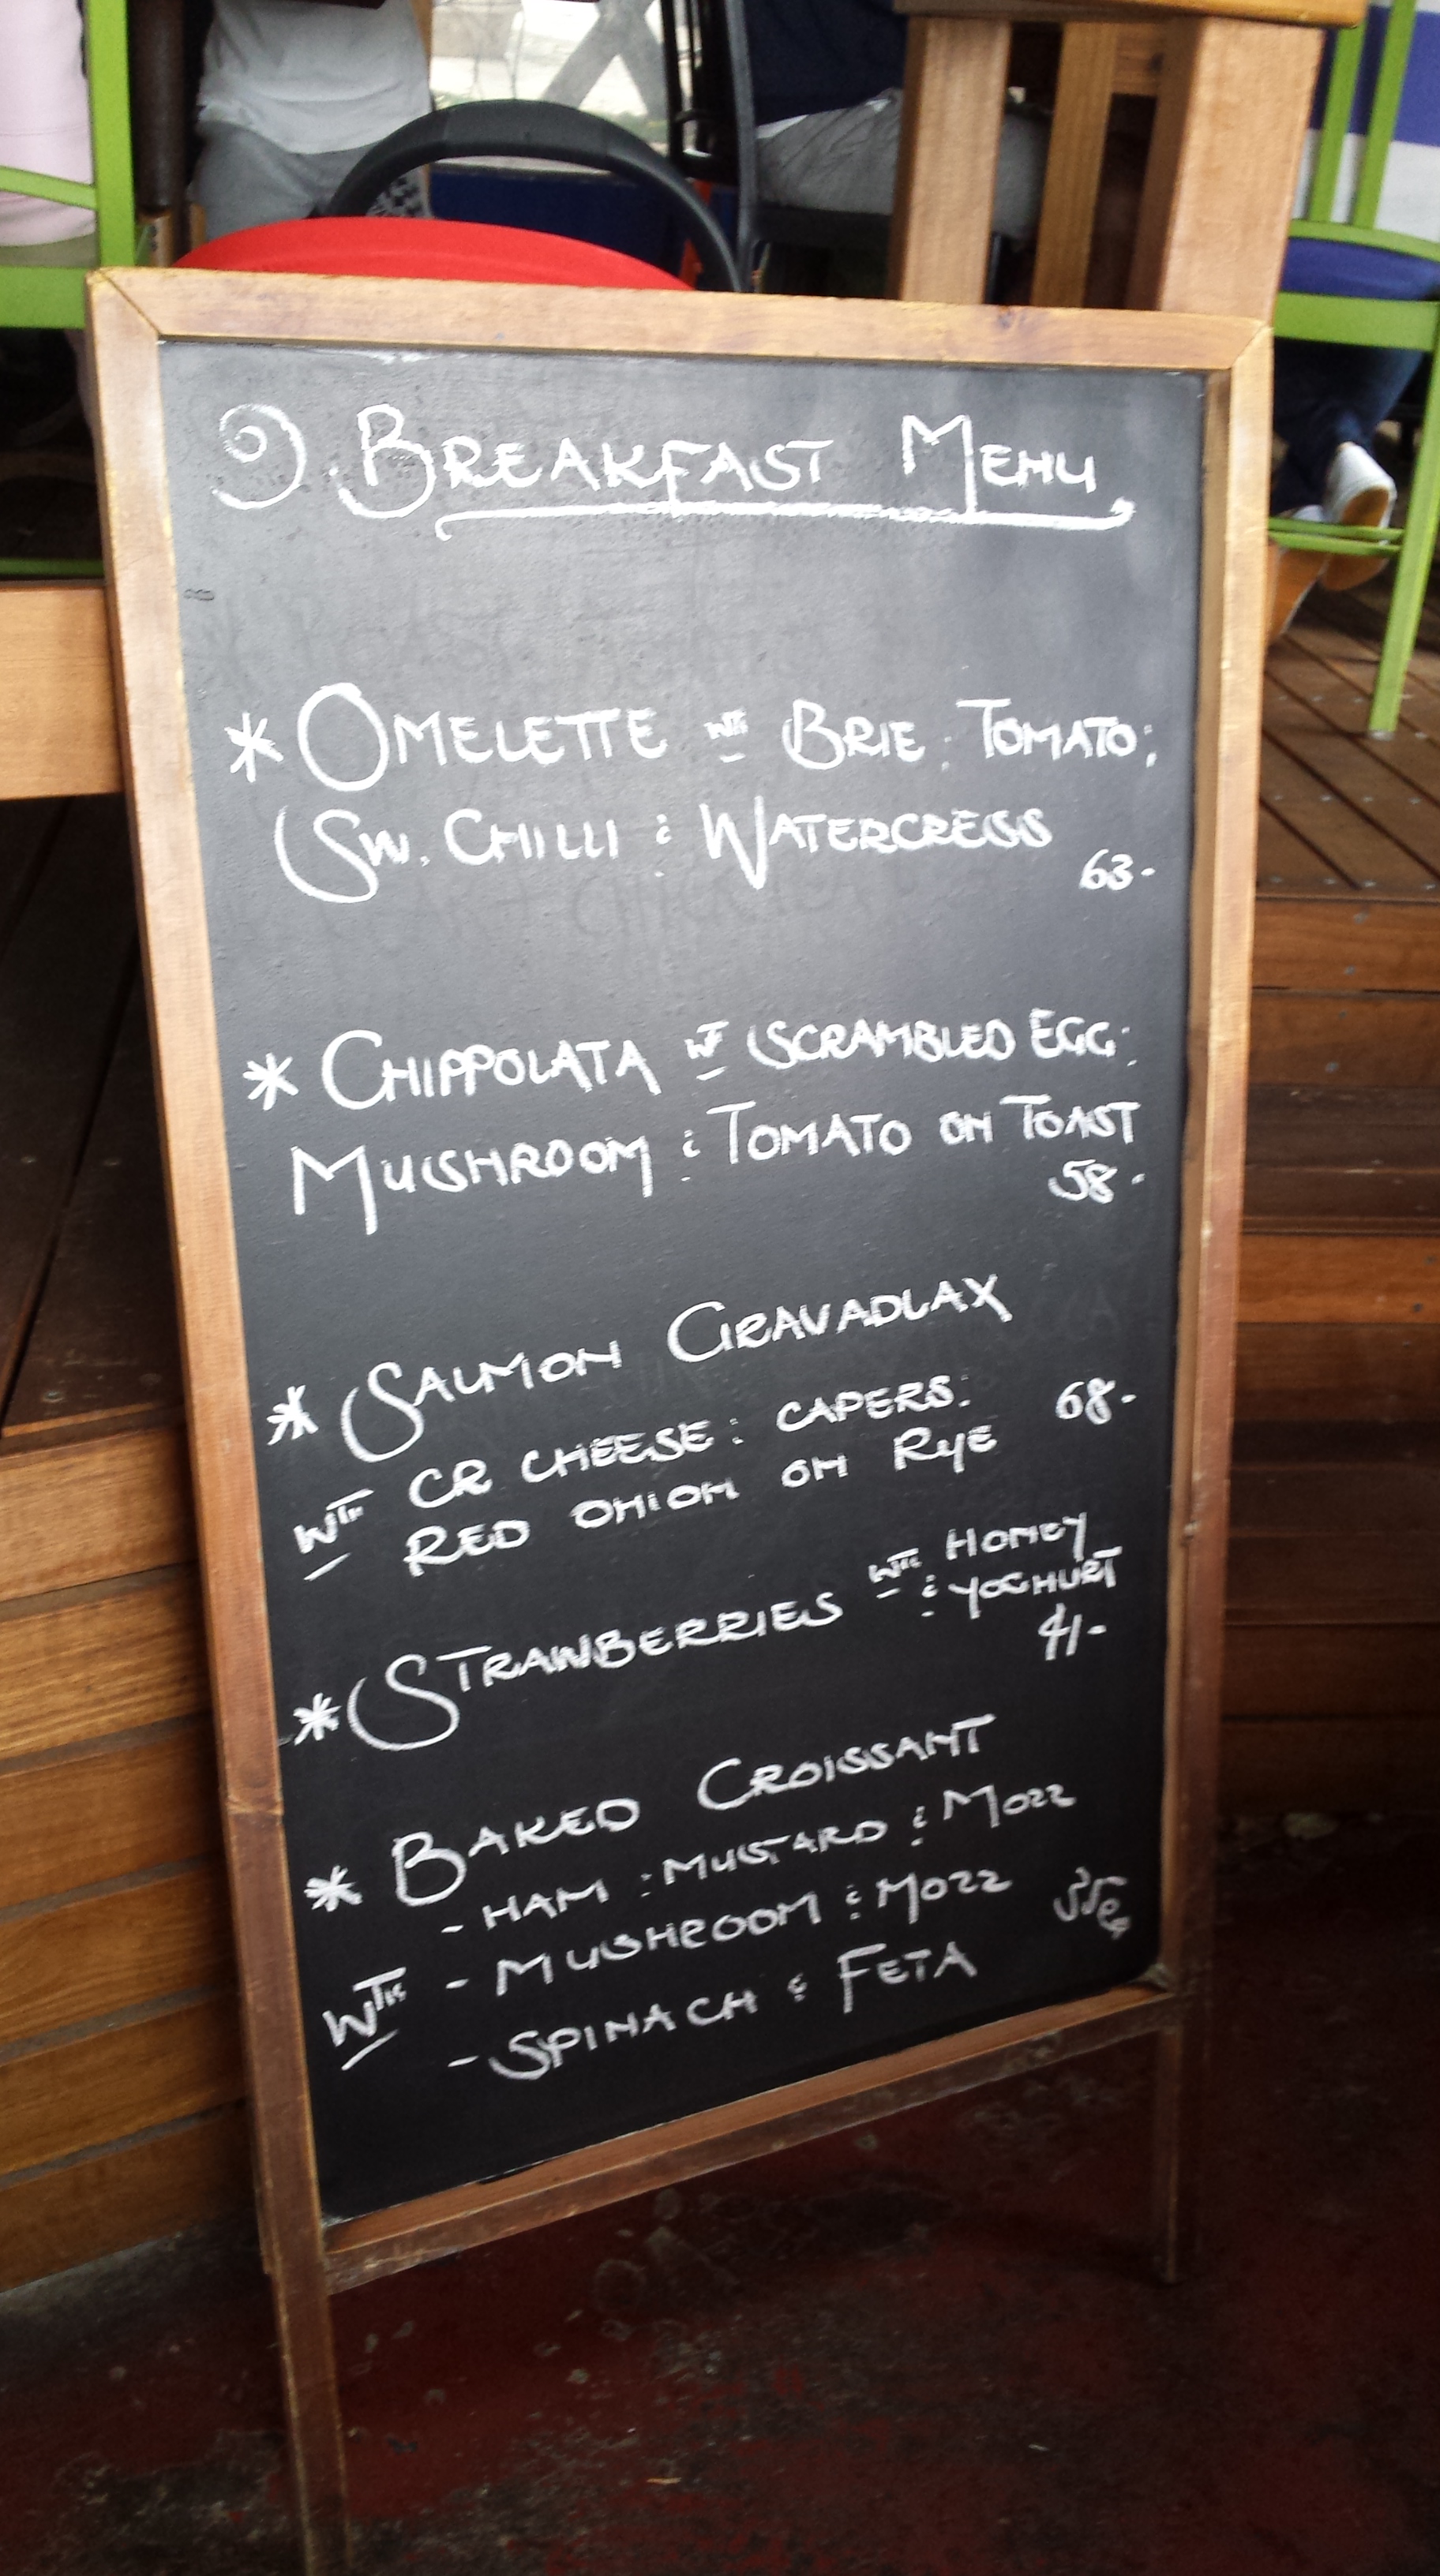 BREAKFAST MENU
* OMELETTE WTH BRIE; TOMATO;
SW. CHILLI & WATERCRESS
63-
* CHIPPOLATA WT SCRAMBLED EGG;
MUSHROOM & TOMATO ON TOAST
58-
* SALMON GRAVADLAX
WTH CR CHEESE; CAPERS; 68-
RED ONION ON RYE
* STRAWBERRIES WTH HONEY
& YOGHURT
41-
* BAKED CROISSANT
- HAM; MUSTARD & MOZZ
WTH - MUSHROOM & MOZZ
- SPINACH & FETA